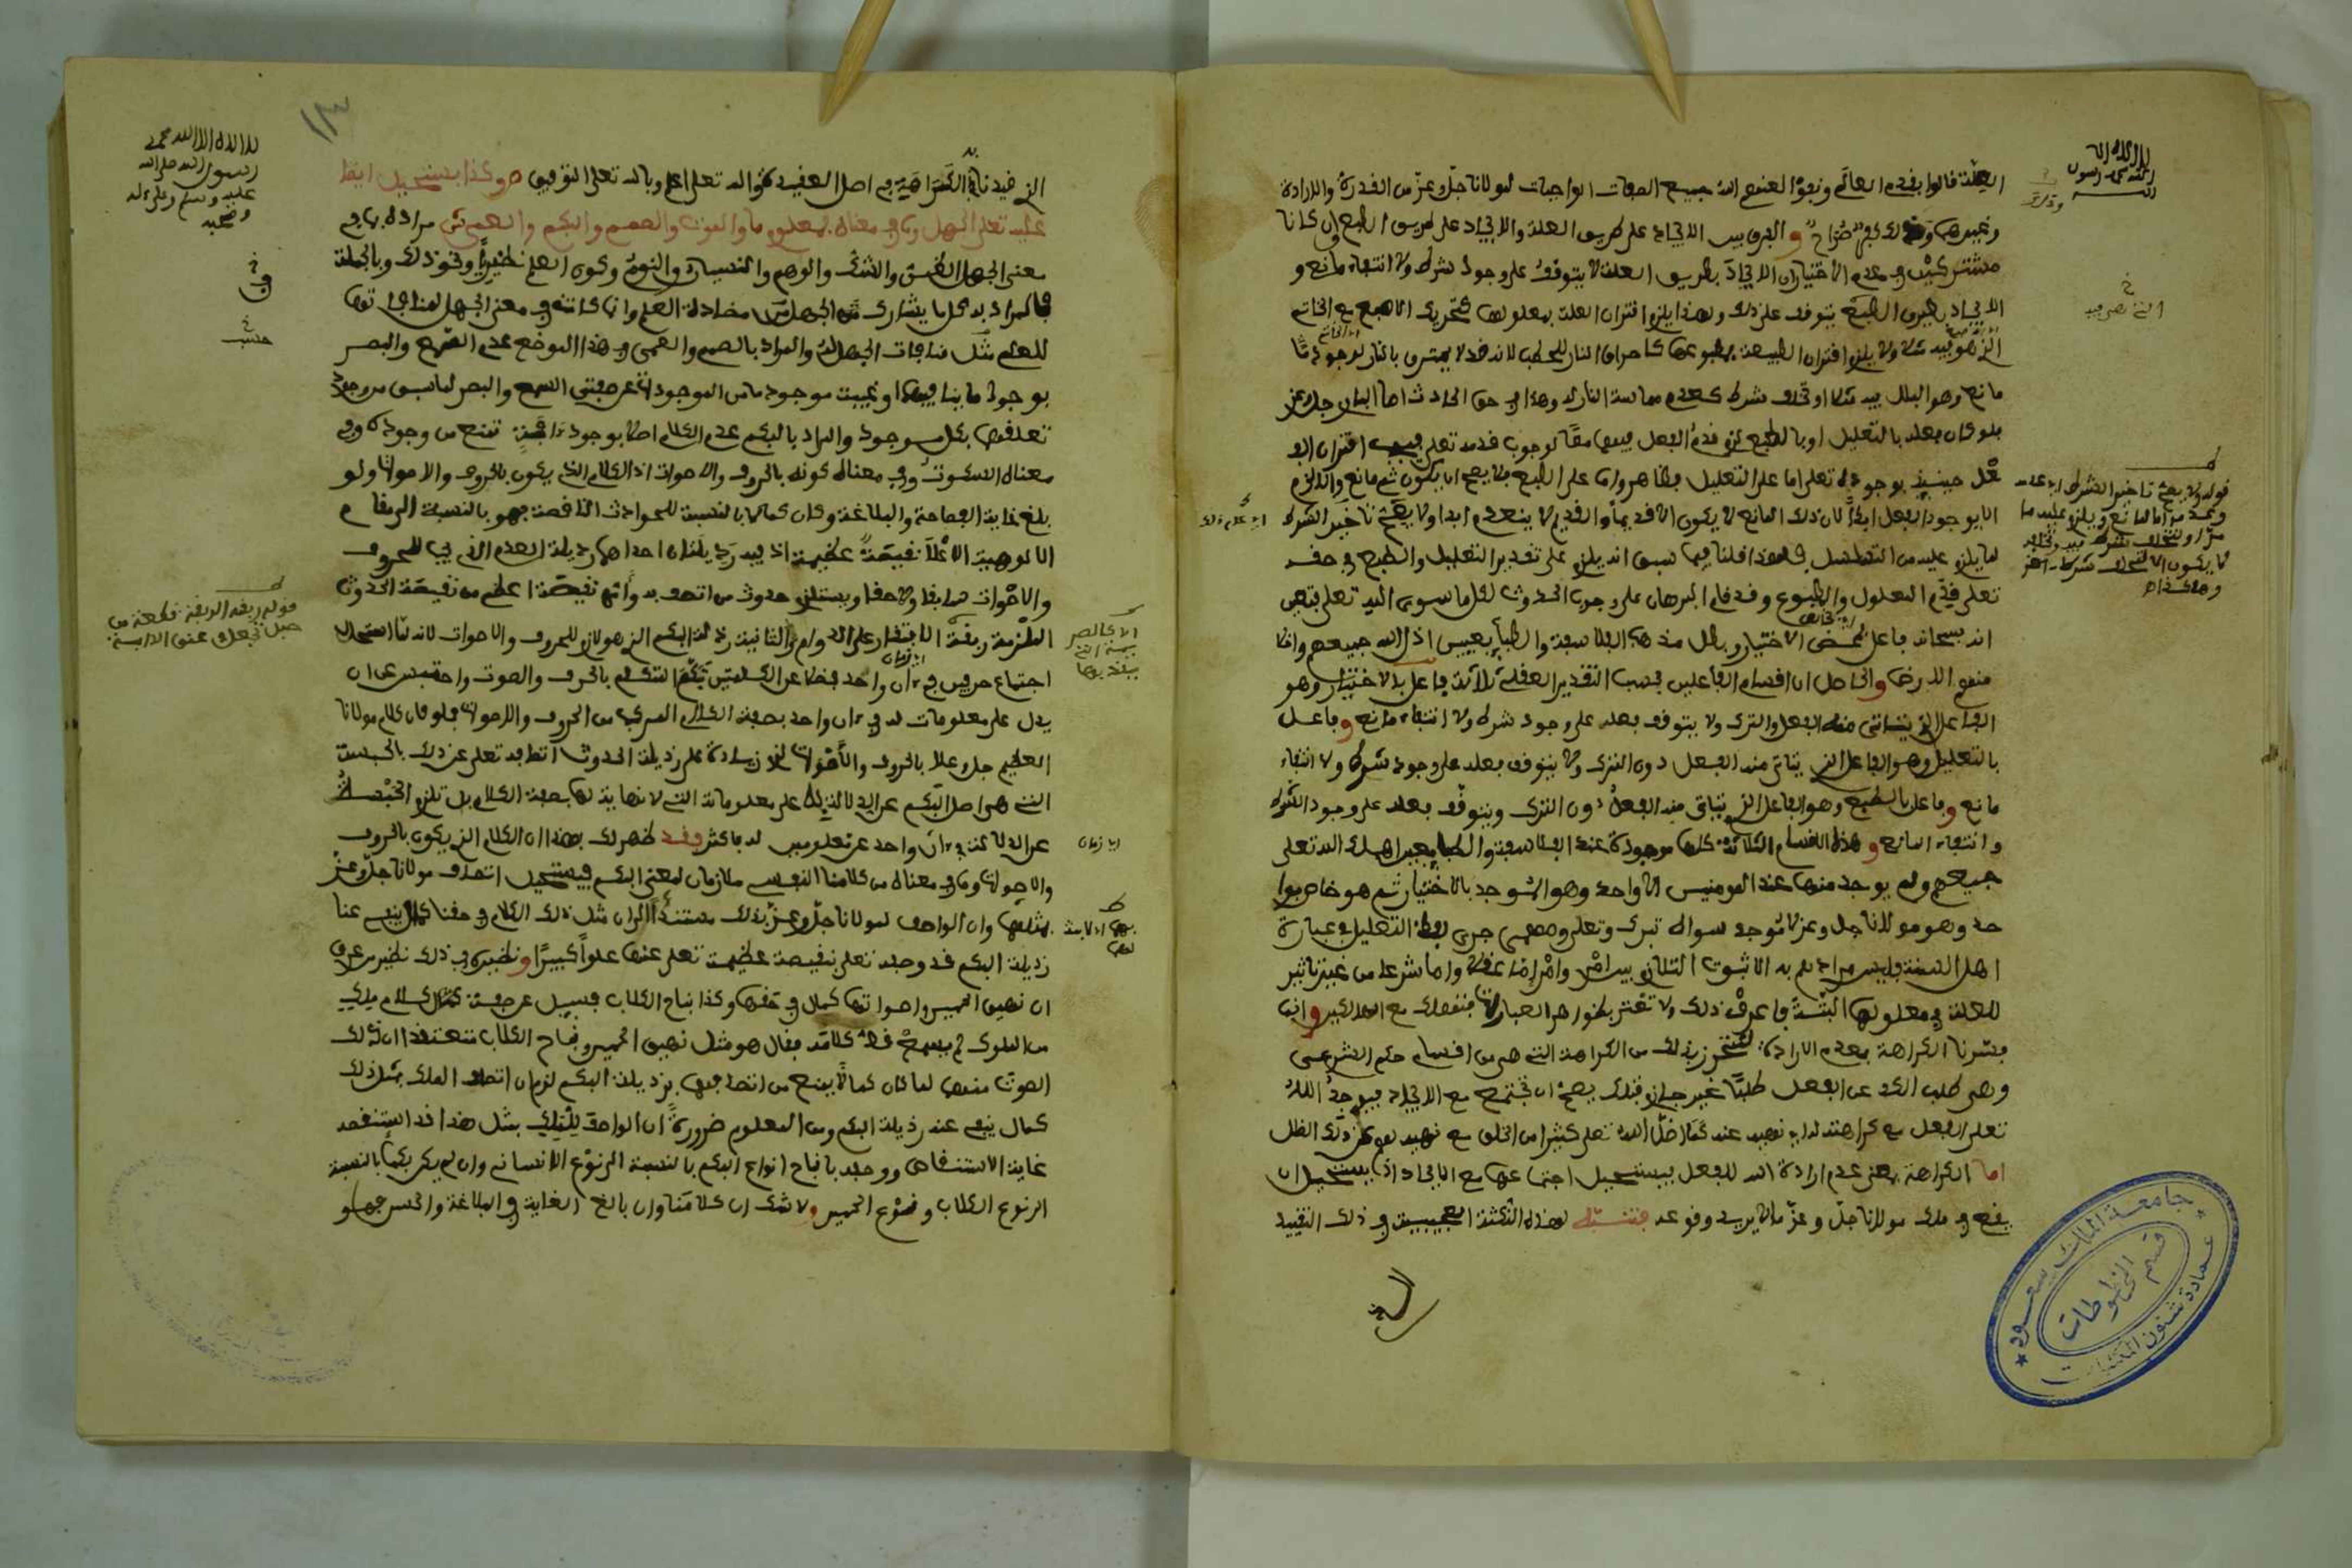 العلة فالوا بفدم العالم ونفوا لعنهم الله جميع الصفات الواجبات لمولانا جل وعز من الفدرة والارادة
وغيرهما وذلك كفر صراح والفرق بين الايجاد على طريق العلة والايجاد على طريق الطبع وان كانا
مشتركين في عدم الاختيار ان الايجاد بطريق العلة لا يتوفف على وجود شرط ولا انتفاء مانع و
الايجاد بطريق الطبع يتوفف على ذلك ولهذا يلزم افتران العلة بمعلولها كتحريك الاصبع مع الخاتم
الذي هو فيه مثلا ولا يلزم افتران الطبيعة بمطبوعها كاحراق النار للحطب لانه فد لا يحترق بالنار لوجود
مانع وهو البلل فيه مثلا او تخلف شرط كعدم مماسة النار له وهذا في حق الحادث اما الباري جل وعز
فلو كان فعله بالتعليل او بالطبع لزم فدم الفعل فيهما معا لوجوب فدمه تعلى فيجب افتران الفـ
ـعل حينئذ بوجوده تعلى اما على التعليل فظاهر واما على الطبع فلا يصح ان يكون ثم مانع والا لزم
الا يوجد الفعل ابدا لان ذلك المانع لا يكون الا فديما والفديم لا ينعدم ابدا ولا يصح تاخير الشرط
لما يلزم عليه من التسلسل فلهذا فلنا فيما سبق انه يلزم على تفدير التعليل والطبع في حفه
تعلى فدم المعلول والمطبوع وفد فام البرهان على وجوب الحدوث لكل ما سوى الله تعلى فتعين
انه سبحانه فاعل بمحض الاختيار وبطل مذهب الفلاسفة والطبايعيين اذل الله جميعهم واخلا
منهم الارض والحاصل ان افسام الفاعلين بحسب التفدير العفلي ثلاثة فاعل بالاختيار وهو
الفاعل الذي يتاتى منه الفعل والترك ولا يتوفف فعله على وجود شرط ولا انتفاء مانع وفاعل
بالتعليل وهو الفاعل الذي يتاتى منه الفعل دون الترك ولا يتوفف فعله على وجود شرط ولا انتفاء
مانع وفاعل بالطبع وهو الفاعل الذي يتاتى منه الفعل دون الترك ويتوفف فعله على وجود الشرط
وانتفاء المانع وهذه الافسام الثلاثة كلها موجودة عند الفلاسفة والطبايعيين اهلك الله تعلى
جميعهم ولم يوجد منها عند المومنين الا واحد وهو الموجد بالاختيار ثم هو خاص بوا
حد وهو مولانا جل وعز لا موجد سواه تبرك وتعلى ومهما جرى لفظ التعليل في عبارة
اهل السنة فليس مرادهم به الا ثبوت التلازم بين امر وامر اما عفلا واما شرعا من غير تاثير
للعلة في معلولها البتة فاعرف ذلك ولا تغتر بظواهر العبارات فتهلك مع الهالكين وانما
فسرنا الكراهة بعدم الارادة لنتحرز بذلك من الكراهة التي هي من افسام حكم الشرعي
وهي طلب الكف عن الفعل طلبا غير جازم فتلك يصح ان تجتمع مع الايجاد فيوجد الله
تعلى الفعل مع كراهته له اي نهيه عنه كما اضل الله تعلى كثيرا من الخلق مع نهيه لهم عن ذلك الضلال
اما الكراهة بمعنى عدم ارادة الله للفعل فيستحيل اجتماعها مع الايجاد اذ يستحيل ان
يفع في ملك مولانا جل وعز ما لا يريد وفوعه فتنبه لهذه النكتة العجيبة في ذلك التفييد
لا اله الا الله
محمد رسول
الله
قوله ولا يصح تاخير الشرط
اي زمان
الذي فيدنا به الكراهية في اصل العفيدة والله تعلى اعلم وبالله تعلى التوفيق ص وكذا يستحيل ايضا
عليه تعلى الجهل وما في معناه بمعلوم ما والموت والصمم والبكم والعمى ش مراده بما في
معنى الجهل الظن والشك والوهم والنسيان والنوم وكون العلم نظريا ونحو ذلك وبالجملة
فالمراد به كل ما يشارك الجهل في مضادته للعلم وانما كانت في معنى الجهل لمنافاتها
للعلم مثل منافات الجهل له والمراد بالصمم والعمى في هذا الموضع عدم السمع والبصر
بوجود ما ينافيهما او غيبة موجود ما من الموجودات عن صفتي السمع والبصر لما سبق من وجوب
تعلفهما بكل موجود والمراد بالبكم عدم الكلام اصلا بوجود ءافة تمنع من وجوده وفي
معناه السكوت وفي معناه كونه بالحروف والاصوات اذ الكلام الذي يكون بالحروف والاصوات ولو
بلغ غاية الفصاحة والبلاغة وكان كمالا بالنسبة للحوادث النافصة فهو بالنسبة الى مفام
الالوهية الاعلا نفيصة عظيمة اذ فيه رذيلتان احداهما رذيلة العدم الذي يجب للحروف
والاصوات سابفا ولاحفا ويستلزم حدوث من اتصف به وانها نفيصة اعظم من نفيصة الحدوث
الملزمة ربفة الافتفار على الدوام والثانية رذيلة البكم الذي هو لازم للحروف والاصوات لانه لما استحال
اجتماع حرفين في ءان واحد فضلا عن الكلمتين تبكم المتكلم بالحرف والصوت واحتبس عن ان
يدل على معلومات له في ءان واحد بصفة الكلام المركب من الحروف والاصوات فلو كان كلام مولانا
العظيم جل وعلا بالحروف والاصوات لزم زيادة على رذيلة الحدوث اتصافه تعلى عن ذلك بالحبسة
التي هي اصل البكم عن الدلالة على معلوماته التي لا نهاية لها بصفة الكلام بل تلزم الحبسة
عن الدلالة في ءان واحد عن معلومين له فاكثر وفد ظهر لك بهذا ان الكلام الذي يكون بالحروف
والاصوات وما في معناه من كلامنا النفسي ملازمان لمعنى البكم فيستحيل اتصاف مولانا جل وعز
بمثلهما وان الواصف لمولانا جل وعز بذلك مستندا الى ان مثل ذلك الكلام في حفنا كمال ينفي عنا
رذيلة البكم فد وصفه تعلى بنفيصة عظيمة تعلى عنها علوا كبيرا ونظيره في ذلك نظير من عرف
ان نهيق الحمير واصواتها كمال في حفها وكذا نباح الكلاب فسيل عن صفة كلام ملك
من الملوك لم يسمع فط كلامه فقال هو مثل نهيق الحمير ونباح الكلاب معتفدا ان ذلك
الصوت منهما لما كان كمالا يمنع من اتصافهما برذيلة البكم لزم ان اتصاف الملك بمثل ذلك
كمال ينفي عنه رذيلة البكم ومن المعلوم ضرورة ان الواصف للملك بمثل هذا فد استنفصه
غاية الاستنفاص ووصفه بافبح انواع البكم بالنسبة الى نوع الانسان وان لم يكن بكما بالنسبة
الى نوع الكلاب ونوع الحمير ولا شك ان كلامنا وان بالغ الغاية في البلاغة والحسن فهو
١٣
لا اله الا الله محمد
رسول الله صلى الله
عليه وسلم وعلى ءاله
وصحبه
قوله ربفة الربفة فطعة من
حبل تجعل في عنق الدابة
جامعة الملك سعود
قسم المخطوطات
عمادة شئون المكتبات